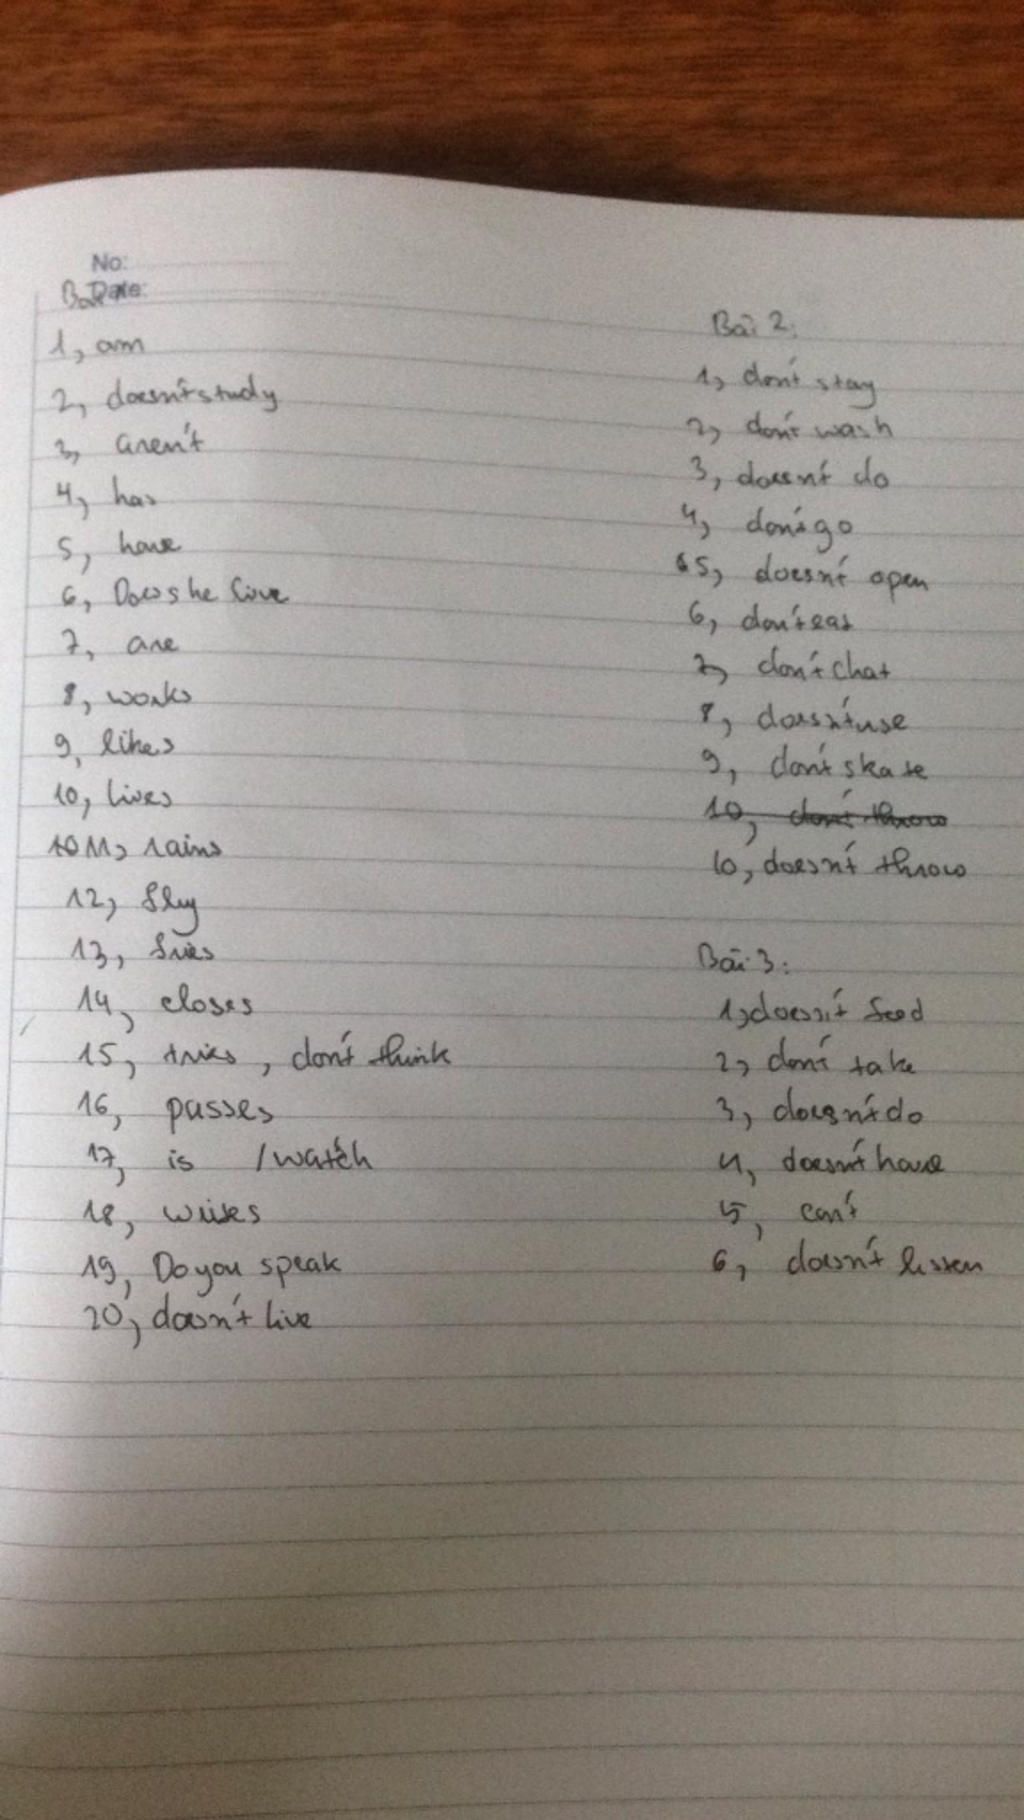 No:
Date:
Bài 1
1, am
2, doesn't study
3, aren't
4, has
5, have
6, Does he live
7, are
8, works
9, likes
10, lives
11, rains
12, fly
13, fries
14, closes
15, tries, don't think
16, passes
17, is / watch
18, writes
19, Do you speak
20, doesn't live
Bài 2:
1, don't stay
2, don't wash
3, doesn't do
4, don't go
5, doesn't open
6, don't eat
7, don't chat
8, doesn't use
9, don't skate
10, don't throw
10, doesn't throw
Bài 3:
1, doesn't feed
2, don't take
3, doesn't do
4, doesn't have
5, can't
6, doesn't listen